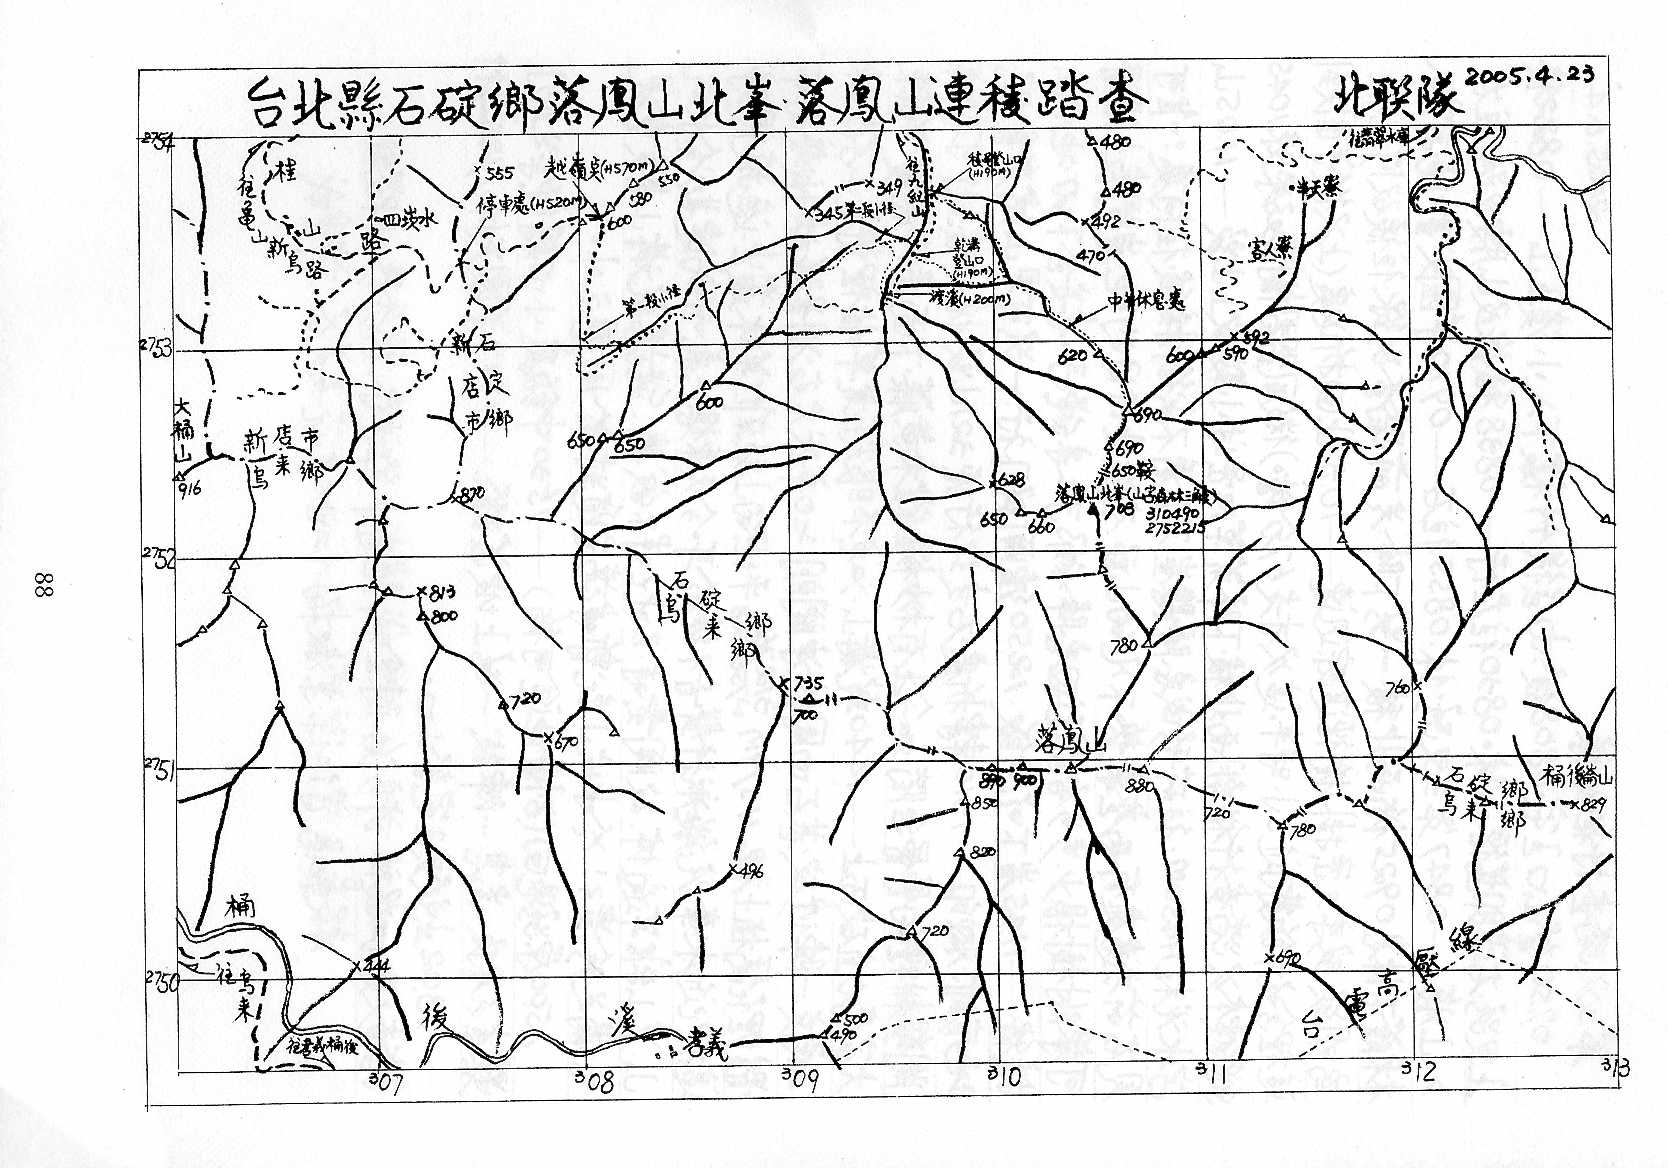 台北縣石碇鄉落鳳山北峯.落鳳山連稜踏查
北联隊 2005.4.23
2754
桂
山
路
往
龜
山
新
烏
路
四崁水
555
越嶺點(H570M)
停車處(H520M)
550
580
600
349
345
第二段小徑
往
九
紅
山
登山口
(H190M)
乾溝
登山口
(H190M)
渡溪(H200M)
第一段小徑
480
480
492
470
中午休息處
往翡翠水庫
半天寮
客人寮
2753
新石
店碇
市鄉
600
650
650
620
600
590
592
690
690
650鞍
落鳳山北峯
708
310490
2752215
628
650
660
大
桶
山
916
新店市
烏來鄉
870
2752
813
800
石碇鄉
烏來鄉
735
700
720
670
780
760
落鳳山
2751
890
900
880
850
820
720
720
780
石碇鄉
烏來鄉
桶後崙山
829
496
690
桶
後
溪
往烏來
444
2750
往孝義桶後
孝義
500
490
台
電
高
壓
線
307
308
309
310
311
312
313
88